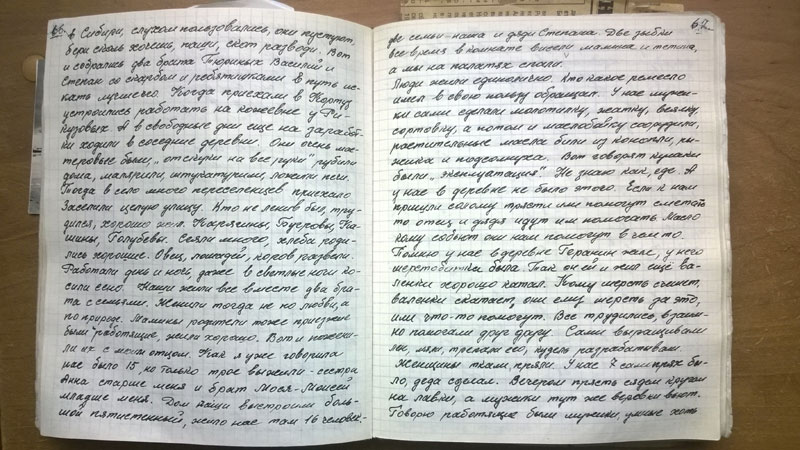 66.
в Сибири, слухом пользовались, они пустуют
бери сколь хочешь, паши, скот разводи. Вот
и собрались два брата Тюриных Василий и
Степан со скарбом и ребятишками в путь ис-
кать лучшего. Когда приехали в Картуз
устроились работать на кожевне у
куровых. А в свободные дни еще на заработ-
ки ходили в соседние деревни. Они очень мас-
теровые были, "от скуки на все руки" рубили
дома, малярили, штукатурили, ложили печи.
Тогда в село много переселенцев приехало
Заселили целую улицу. Кто не ленив был, тру-
дился, хорошо жил. Карягины, Бусровы, Ка-
шины, Голубевы. Сеяли много, хлеба роди-
лись хорошие. Овец, лошадей, коров развели.
Работали день и ночь, даже в светлые ночи ко-
сили сено. Наши жили все вместе два бра-
та с семьями. Женили тогда не по любви, а
по природе. Мамины родители тоже приезжие
были работящие, жили хорошо. Вот и пожени-
ли их с моим отцом. Как я уже говорила
нас было 15, но только трое выжили - сестра
Анна старше меня и брат Мося-Моисей
младше меня. Дом наши выстроили боль-
шой пятистенный, жило нас там 16 человек,-
67.
две семьи - наша и дяди Степана. Две зыбки
все время в комнате висели мамина и тетина,
а мы на палатях спали.
Люди жили единолично. Кто какое ремесло
имел в свою пользу обращал. У нас мужи-
ки сами сделали молотилку, жатку, веялку,
сортовку, а потом и маслобойку соорудили,
растительные масла били из конопли, ры-
жика и подсолнуха. Вот говорят кулаки
были, "эксплуатация". Не знаю как, где. А
у нас в деревне не было этого. Если к нам
пришли солому трясти или помогут сметать
то отец и дядя идут им помогать. Масло
кому собьют они нам помогут в чем то.
Помню у нас в деревне Горанин жил, у него
шерстобитка была. Так он ей и жил ещё ва-
ленки хорошо катал. Кому шерсть
валенки скатает, они ему шерсть за это,
или что-то помогут. Все трудились, взаим-
но помогали друг другу. Сами выращивали
лён, мяли, трепали его, кудель разрабатывали.
Женщины ткали, пряли. У нас 7 самопрях бы-
ло, деда сделал. Вечером прясть сядем кругом
на лавки, а мужики тут же веревки вьют.
Говорю работящие были мужики, умные хоть